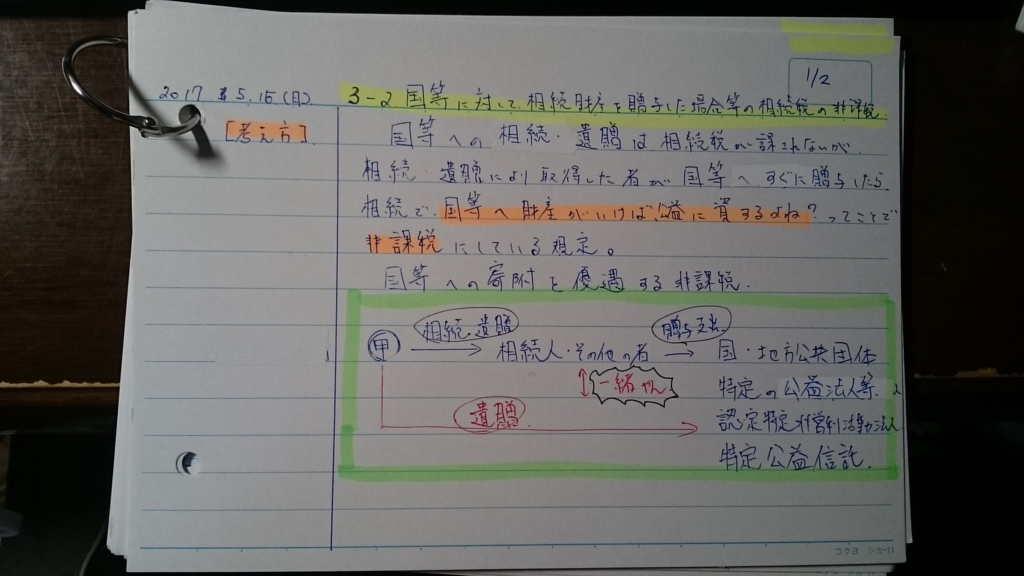 1/2
2017 5.15(月)
3-2 国等に対して相続財産を贈与した場合等の相続税の非課税
[考え方]
国等への相続・遺贈は相続税が課されないが
相続・遺贈により取得した者が国等へすぐに贈与したら
相続で国等へ財産がいけば公益に資するよね?ってことで
非課税にしている規定。
国等への寄附を優遇する非課税.
相続・遺贈
贈与
甲 → 相続人・その他の者 → 国・地方公共団体
一緒やん
特定の公益法人等
遺贈
認定特定非営利活動法人
特定公益信託.
コクヨ シカ-11